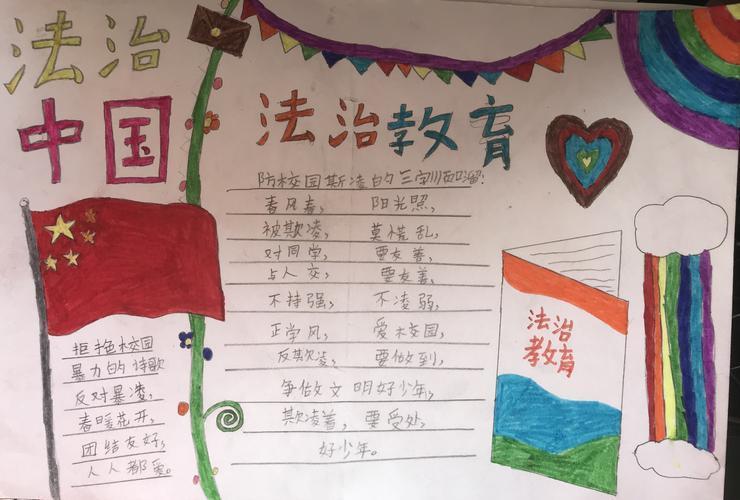 法治
中国
法治教育
防校园斯凌的三字顺口溜:
春风春, 阳光照,
被欺凌, 莫慌乱,
对同学, 要友善,
与人交, 要友善,
不持强, 不凌弱,
正学风, 爱校园,
反欺凌, 要做到,
争做文明好少年,
欺凌着, 要受处,
好少年。
拒绝校园
暴力的诗歌
反对暴凌,
春暖花开,
团结友好,
人人都爱。
法治
教育